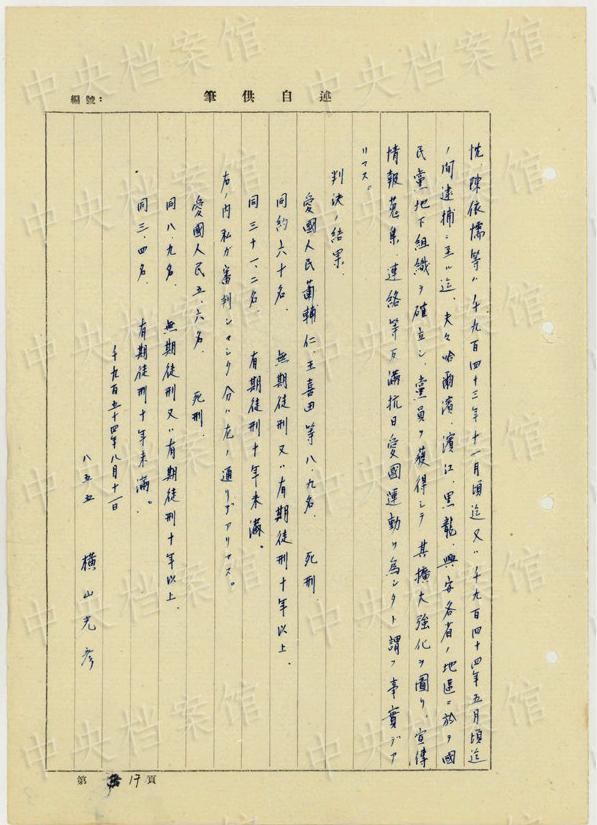 述自供筆
編號：
悦、陳依儒等ハ千九百四十三年十一月頃迄又ハ千九百四十四年五月頃迄
ノ間逮捕ニ至ル迄、夫々哈爾濱、濱江、黒龍、興安各省ノ地區ニ於テ國
民黨地下組織ヲ確立シ、黨員ヲ獲得シテ其擴大強化ヲ圖リ、宣傳
情報蒐集、連絡等反満抗日愛國運動ヲ為シタト謂フ事實デア
リマス。
判決ノ結果、
愛國人民 輔仁、王喜田等八、九名、死刑
同約六十名、無期徒刑又ハ有期徒刑十年以上、
同三十一、二名、有期徒刑十年未滿。
右ノ内私ガ審判シマシタ分ハ左ノ通リデアリマス。
愛國人民五、六名、死刑、
同八、九名、無期徒刑又ハ有期徒刑十年以上、
同三、四名、有期徒刑十年未満。
千九百五十四年八月十一日
八五五 横山光彦
第 17 頁
中央档案馆